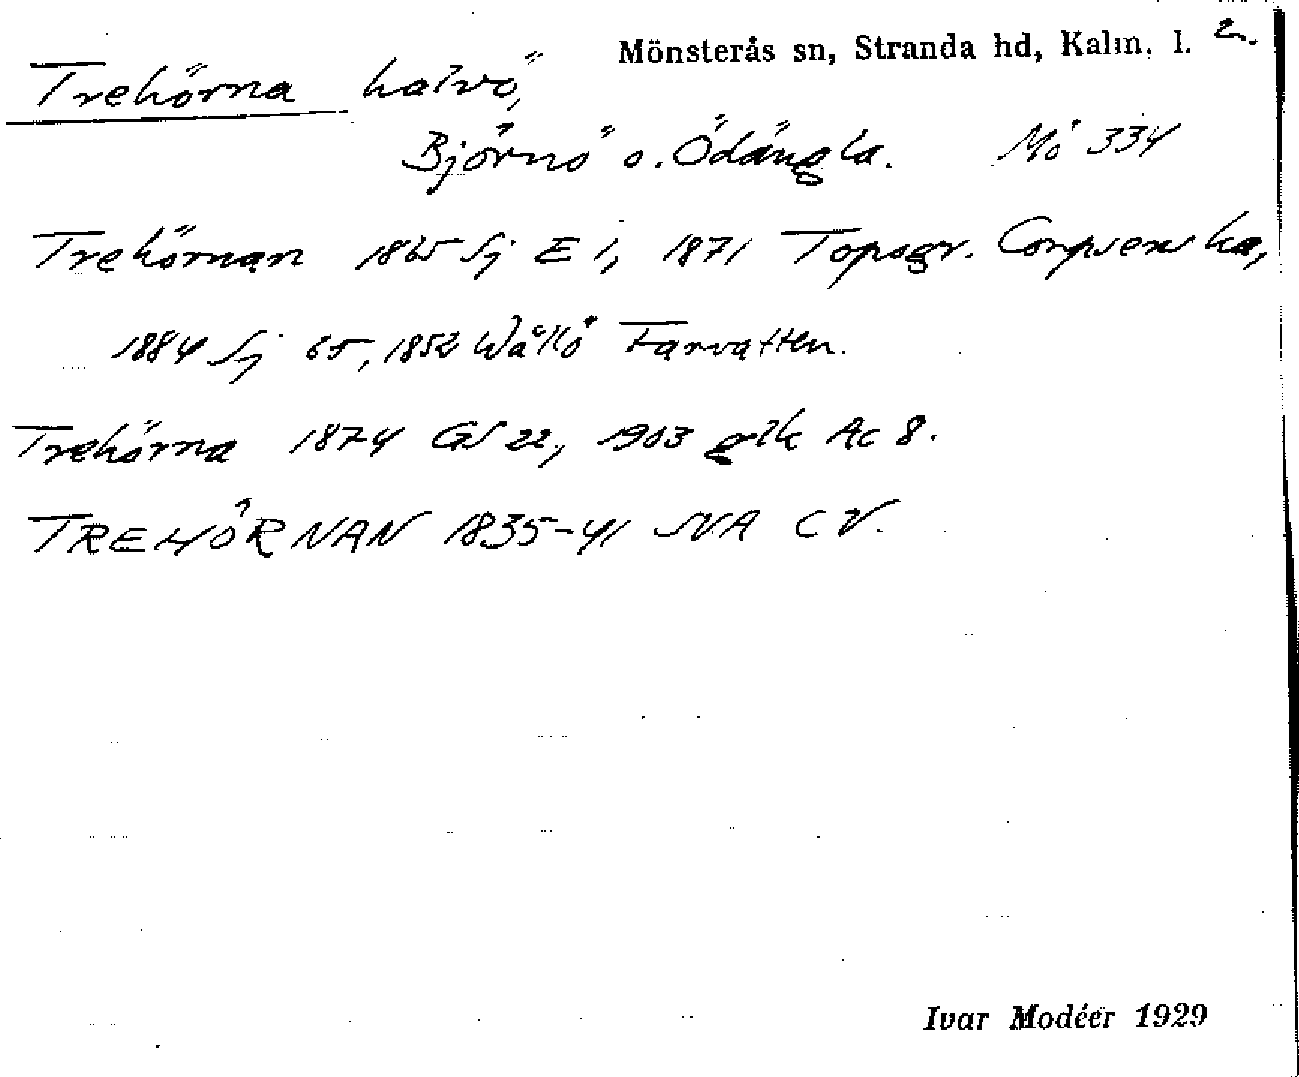 Mönsterås sn, Stranda hd, Kalm. l. 2.
Trehörna halvö,
Björnö o. Ödängla. Mö 334
Trehörnan 1865 Sj E i, 1871 Topogr. Corpsens ka,
1884 Sj 65, 1852 Wållö Farvatten.
Trehörna 1874 GS 22, 1903 glk Ac 8.
TREHÖRNAN 1835-41 SVA C V.
Ivar Modéer 1929